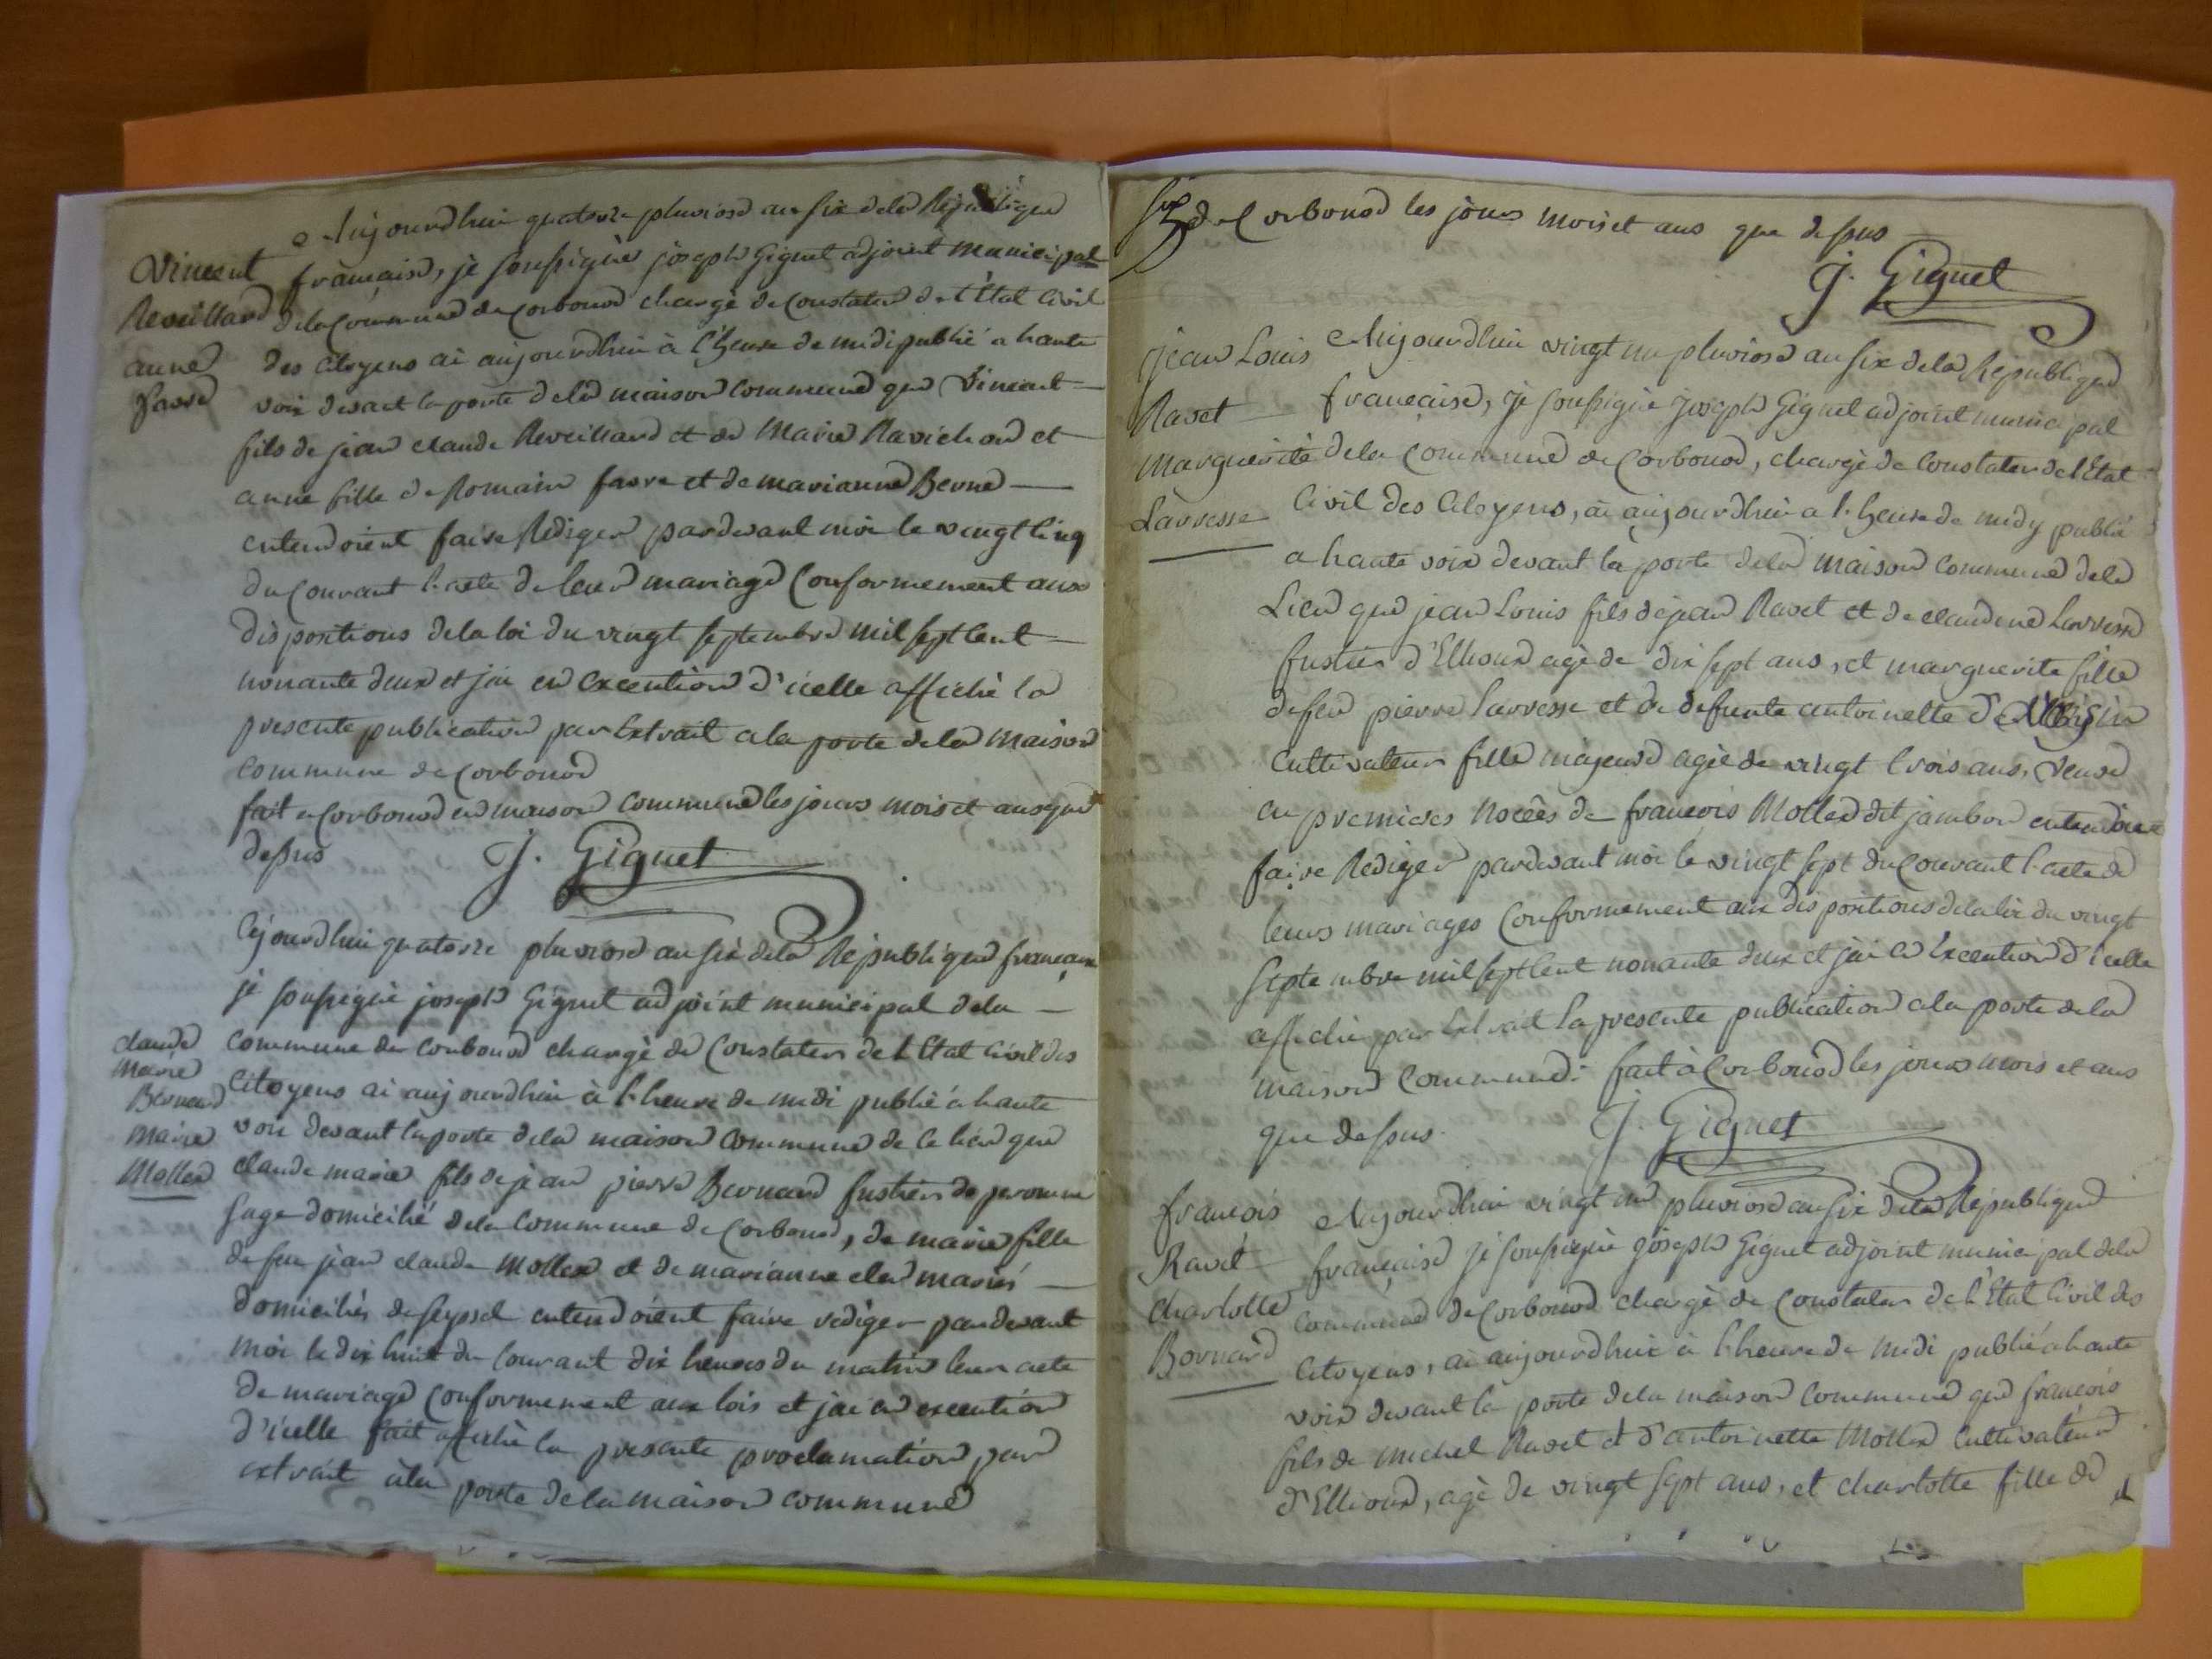 Aujourdhuy quatorze pluviose an six dela Republique
Vincent
Reveillard
anne
favre
francaise, je soussigné joseph Giguet adjoint municipal
dela Commune de Corbonod chargé de Constater de l'Etat Civil
des Citoyens ai aujourdhui à l'heure de midi publié a haute
voix devant la porte dela maison commune que Vincent
fils de jean claude Reveillard et de Marie Ravichon et
anne fille de Romain favre et de marianne Berne
entendoient faire Rediger pardevant moi le vingt cinq
du Courant l'acte de leur mariage Conformement aux
dispositions dela loi du vingt septembre mil sept cent
nonante deux et jai en execution d'icelle affiché la
presente publication par Extrait a la porte dela maison
commune de Corbonod
fait a Corbonod en maison commune les jours mois et ans que
dessus J. Giguet
Cejourdhui quatorze pluviose an six dela Republique francaise
je soussigné joseph Giguet adjoint municipal dela
claude
Marie
Bernard
Marie
Mollex
commune de Corbonod chargé de Constater de l'Etat Civil des
Citoyens ai aujourdhui à l'heure de midi publié à haute
voix devant la porte dela maison commune de ce lieu que
claude marie fils de jean pierre Bernard fustier de peronne
sage domicilié dela Commune de Corbonod, de marie fille
de feu jean claude Mollex et de marianne clerd mariés
domiciliés de seyssel entendoient faire rediger pardevant
moi le dix huit du Courant dix heures du matin leur acte
de mariage Conformement aux lois et jai en execution
d'icelle fait affiché la presente proclamation par
extrait à la porte de la maison commune
de Corbonod les jours mois et ans que dessus
J. Giguet
jean Louis
Ravet
Marguerite
Larvesse
Aujourdhui vingt un pluviose an six dela Republique
francaise, je soussigné joseph Giguet adjoint municipal
dela commune de Corbonod, chargé de Constater de l'Etat
Civil des Citoyens, ai aujourdhui a l'heure de midy publié
a haute voix devant la porte dela maison commune dela
Lieu que jean Louis fils de jean Ravet et de claudine Larvesse
fustier d'Ethoux agé de dix sept ans, et marguerite fille
de feu pierre Larvesse et de defunte antoinette
Cultivateur fille majeure agée de vingt trois ans, Veuve
en premieres noces de francois Mollex dit jambon entendoient
faire Rediger pardevant moi le vingt sept du Courant l'acte de
leurs mariages Conformement aux dispositions dela loi du vingt
septembre mil sept cent nonante deux et jai en Execution d'icelle
affiché par Extrait la presente publication a la porte dela
maison Commune. fait à Corbonod les jours mois et ans
que dessus. J. Giguet
francois
Ravet
Charlotte
Bornard
Aujourdhui vingt un pluviose an six dela Republique
francaise je soussigné joseph Giguet adjoint municipal dela
commune de Corbonod chargé de Constater de l'Etat Civil des
Citoyens, ai aujourdhui à l'heure de midi publié a haute
voix devant la porte dela maison commune que francois
fils de michel Ravet et d'antoinette Mollex Cultivateur
d'Ethoux, agé de vingt sept ans, et charlotte fille de